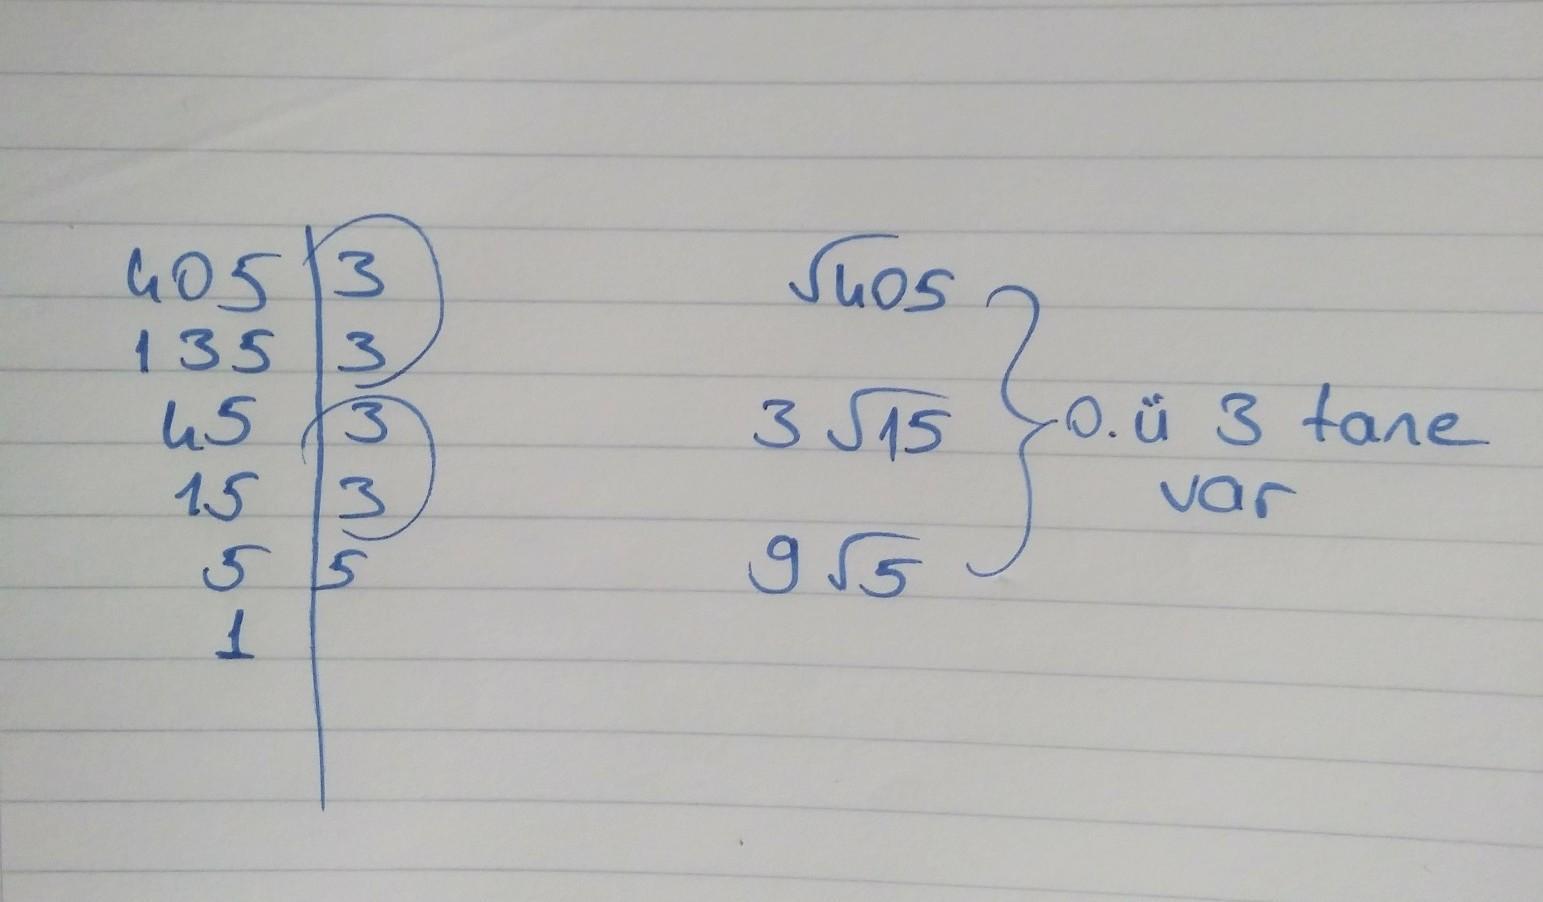 405 | 3
135 | 3
45 | 3
15 | 3
5 | 5
1
√405
3√15
9√5
0.ü 3 tane
var